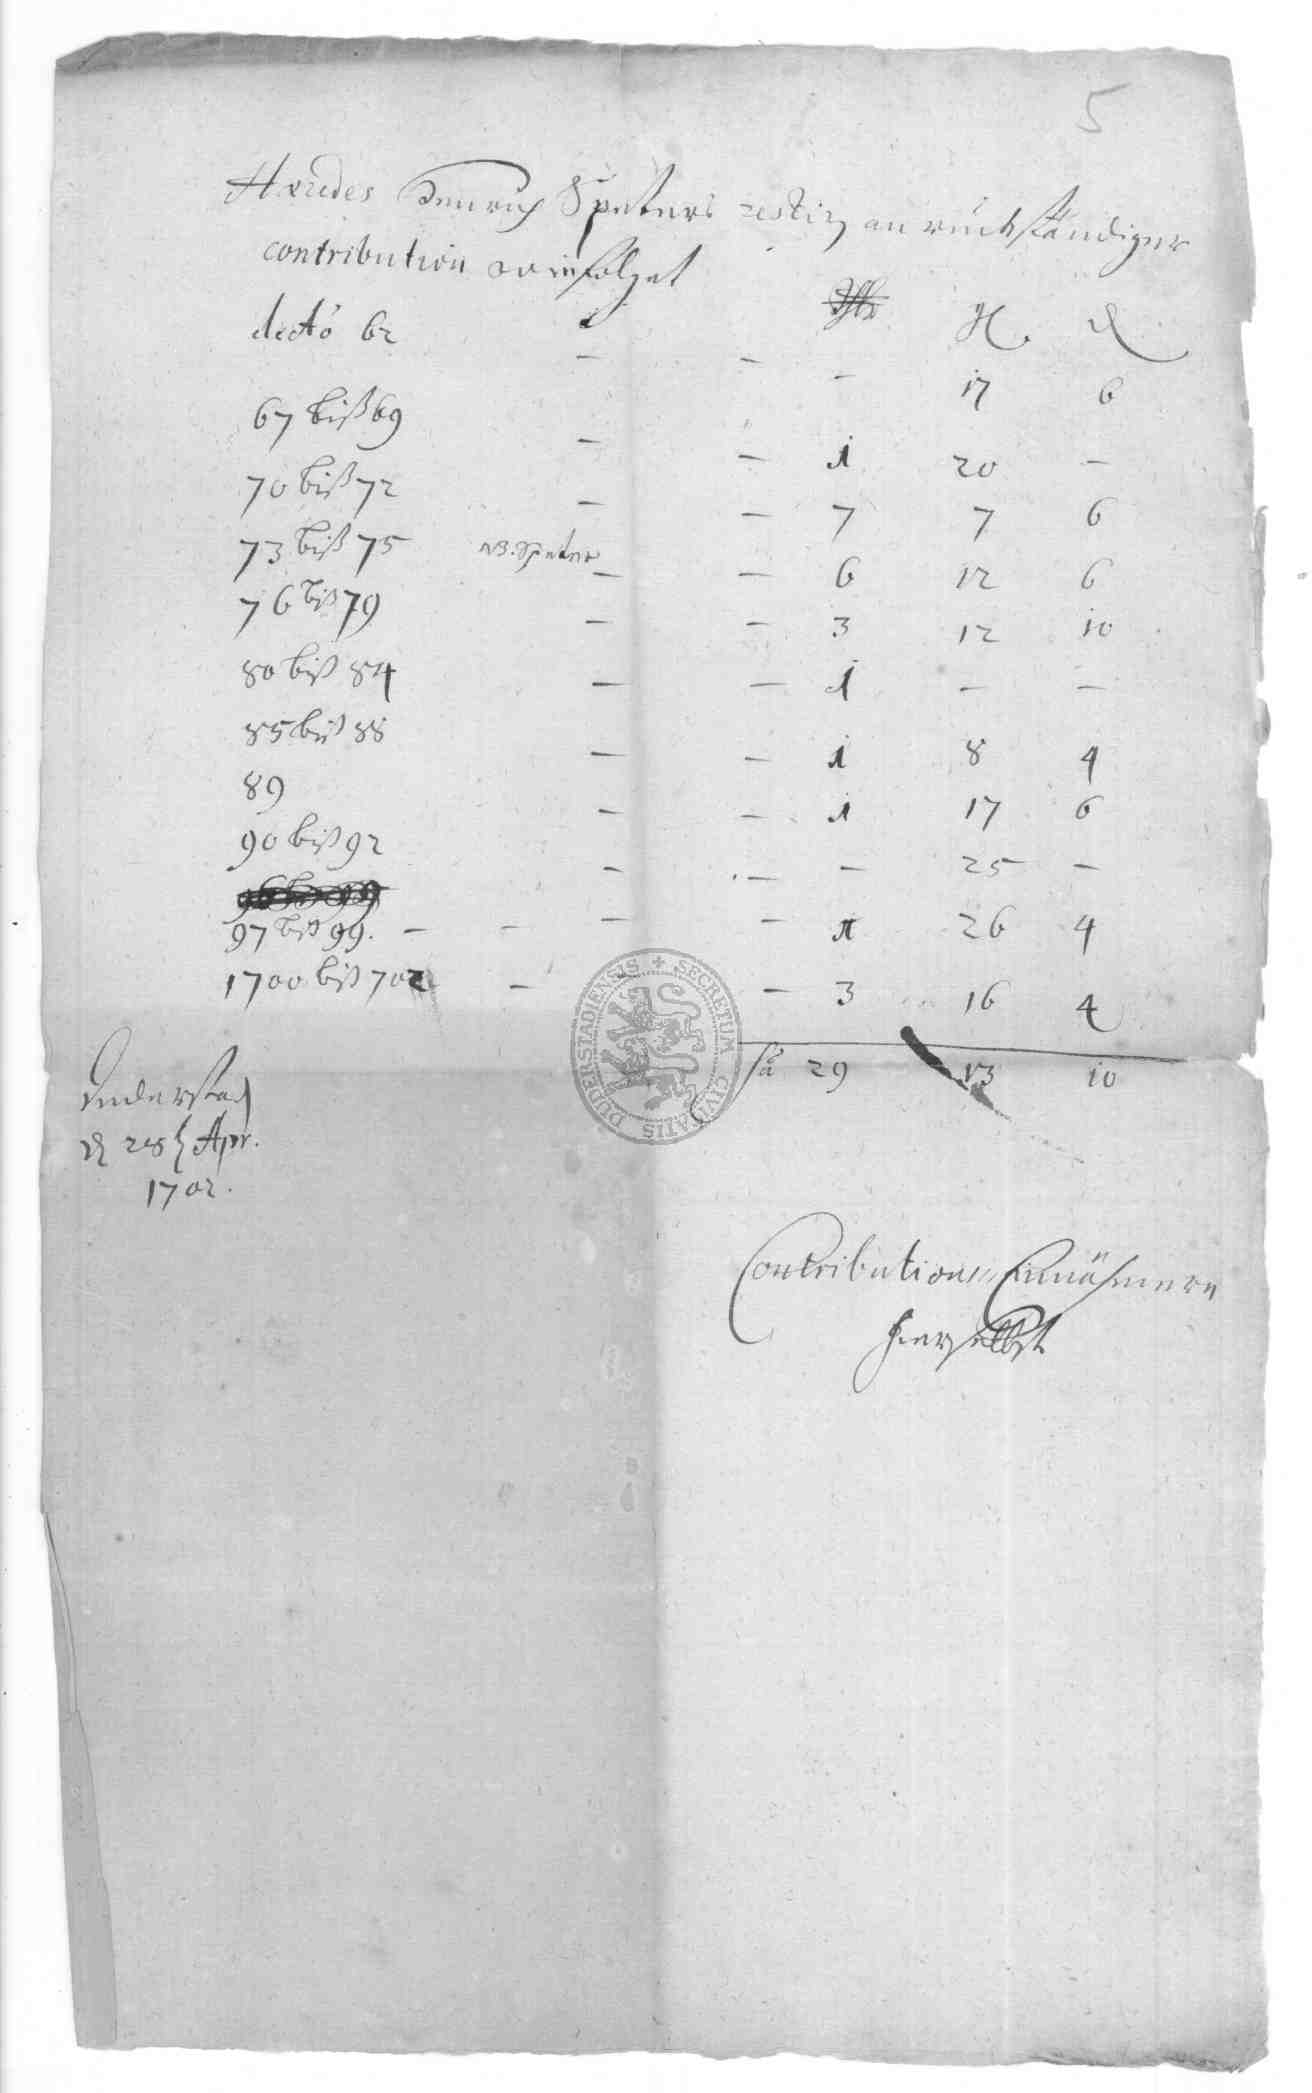 5
Hæredes Henrich Speters restiren an rückständiger
contribution wie folget
de Aō 62 – – – 17 6
67 biß 69 – – 1 20 –
70 biß 72 – – 7 7 6
73 biß 75 NB. Speter – – 6 12 6
76 biß 79 – – 3 12 10
80 biß 84 – – 1 – –
85 biß 88 – – 1 8 4
89 – – 1 17 6
90 biß 92 – – – 25 –
97 biß 99. – – – – 1 26 4
1700 biß 702 – – 3 16 4
sa 29 13 10
Duderstadt
d 28t Apr.
1702.
Contributions Einnähmere
hierselbst
SECRETUM CIVITATIS DUDERSTADIENSIS